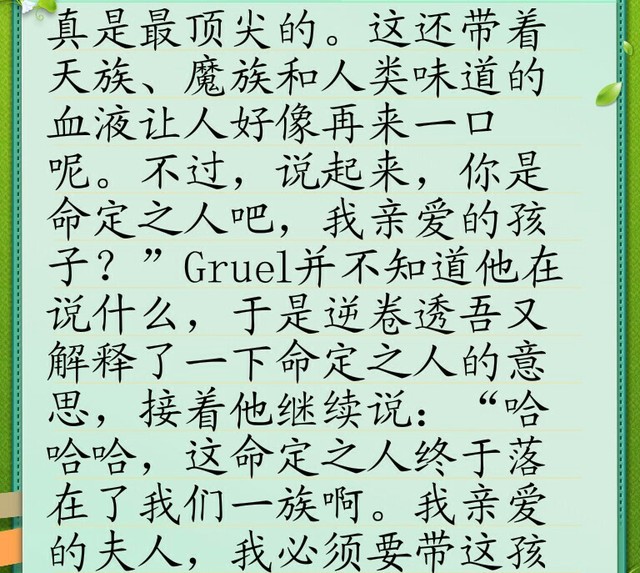 真是最顶尖的。这还带着
天族、魔族和人类味道的
血液让人好像再来一口
呢。不过，说起来，你是
命定之人吧，我亲爱的孩
子？”Gruel并不知道他在
说什么，于是逆卷透吾又
解释了一下命定之人的意
思，接着他继续说：“哈
哈哈，这命定之人终于落
在了我们一族啊。我亲爱
的夫人，我必须要带这孩